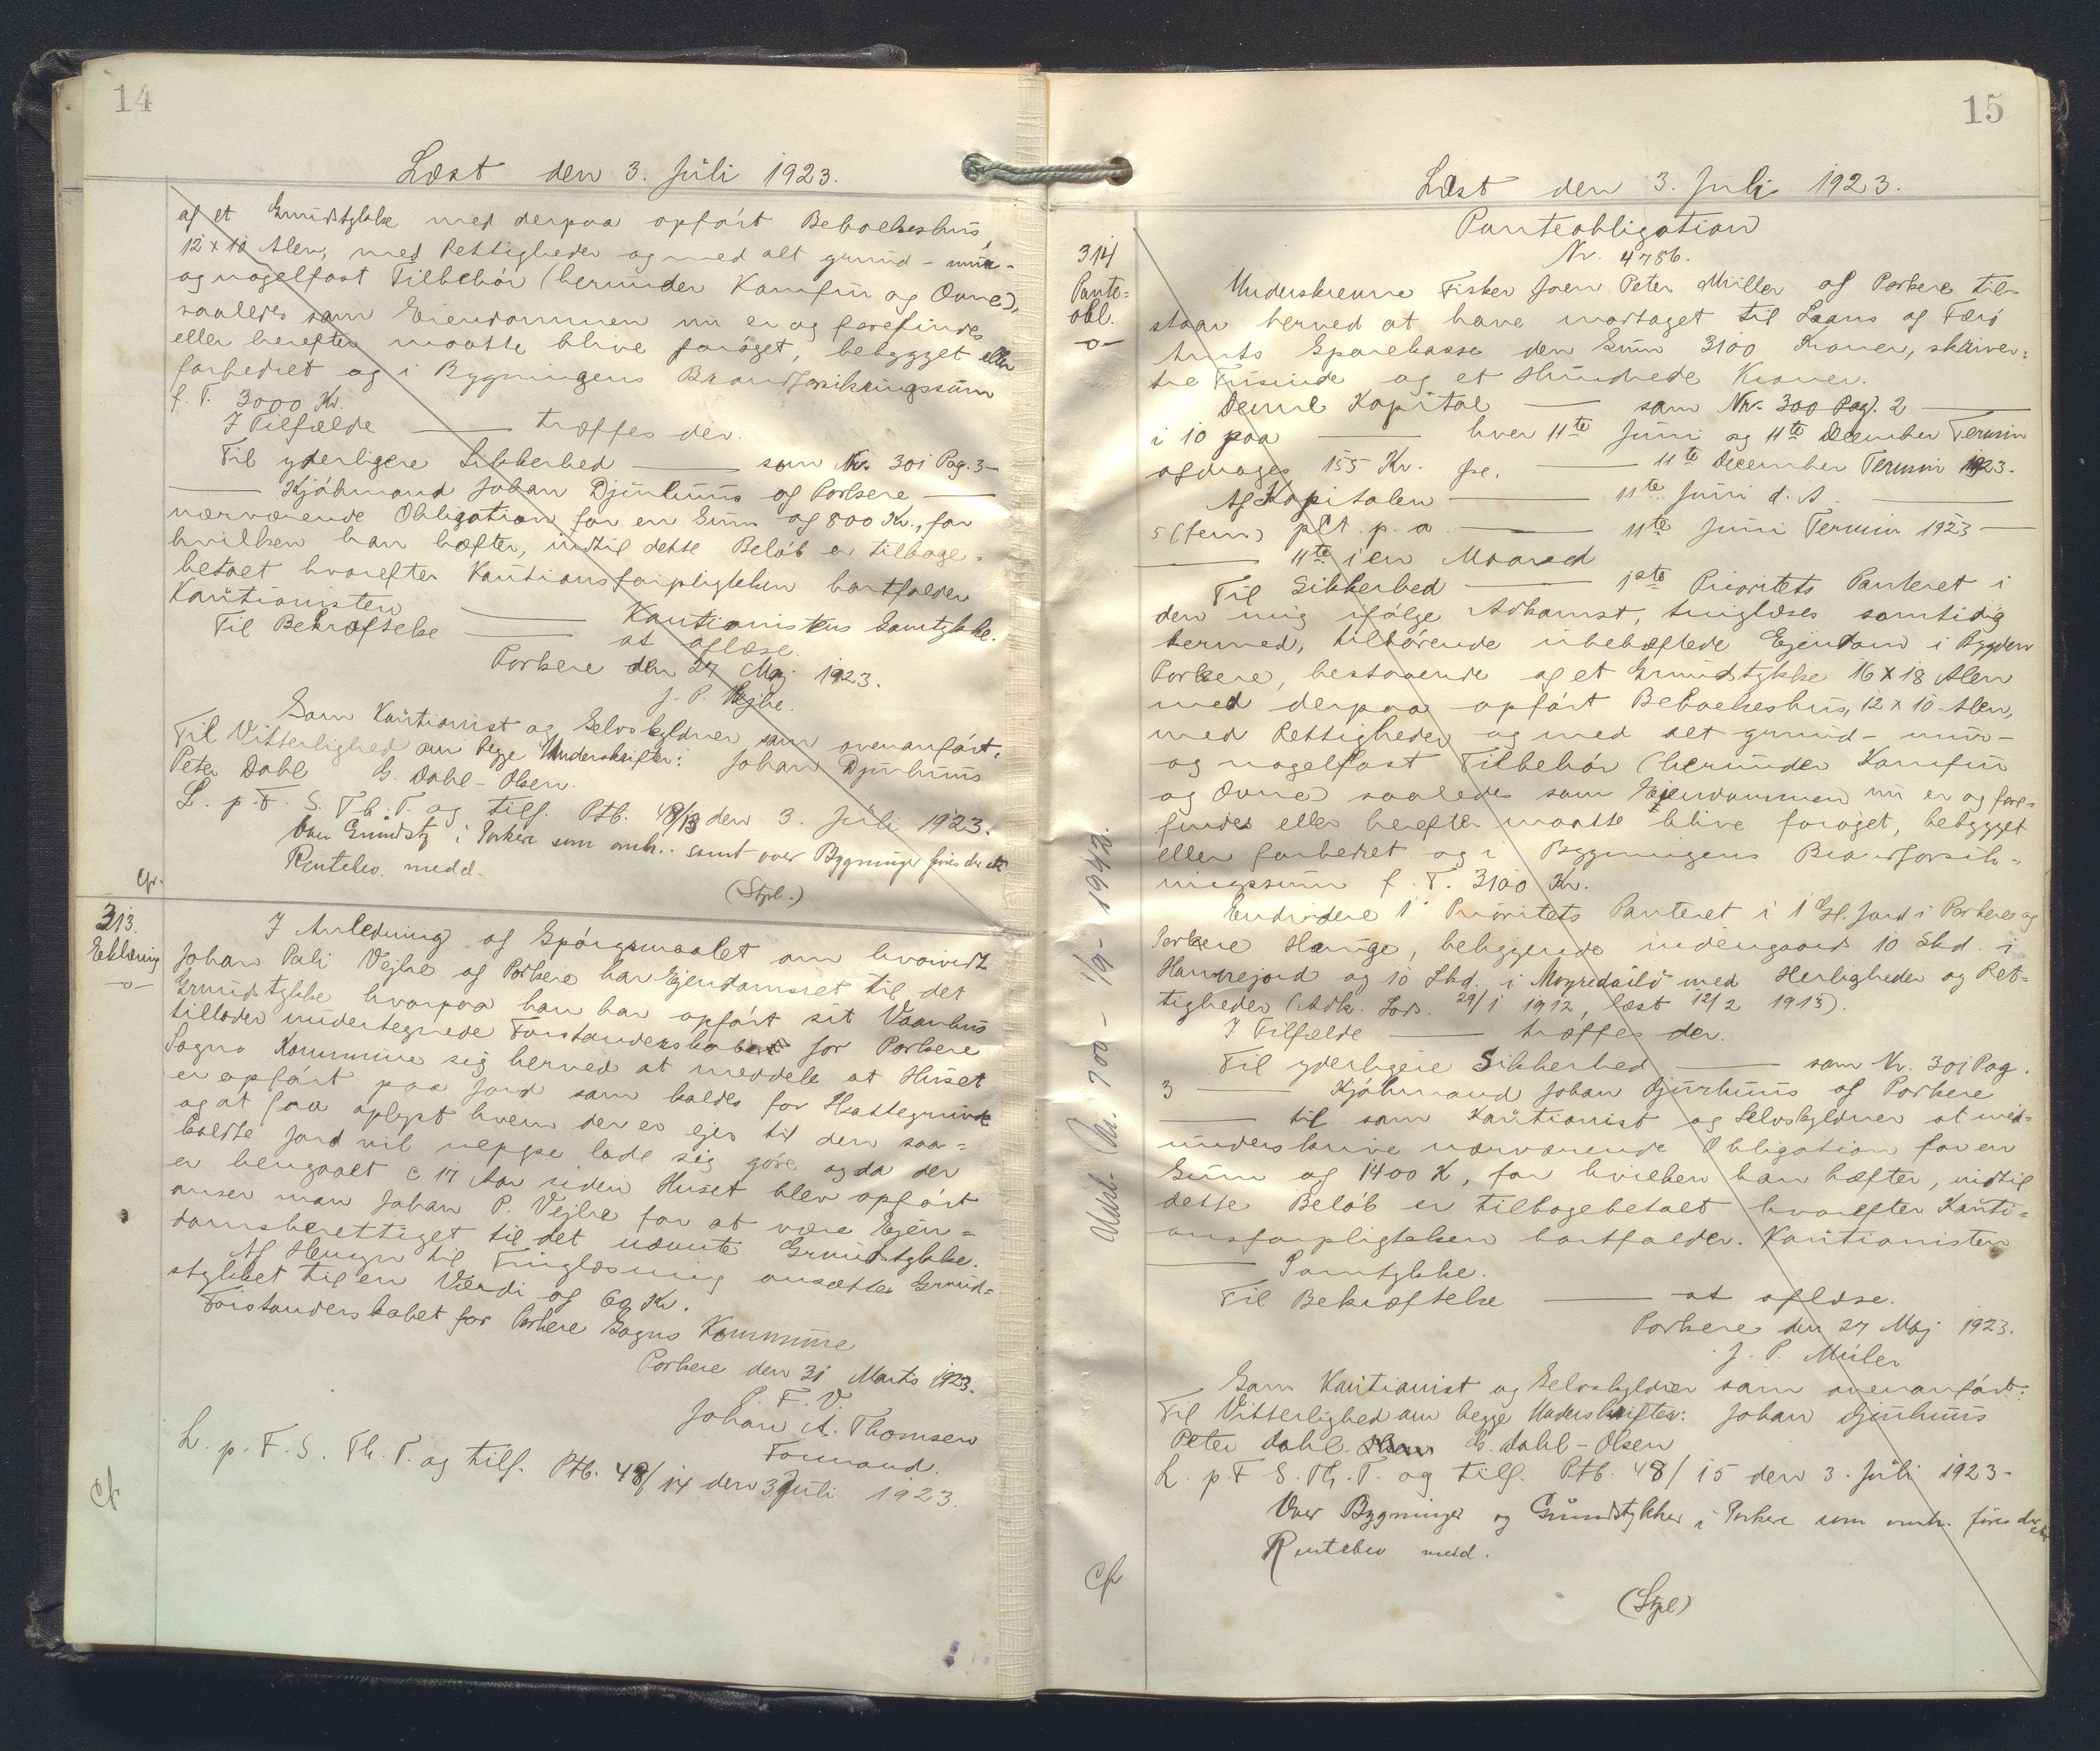 14
Læst den 3. Juli 1923.
af et Grundstykke med derpaa opført Beboelseshus,
12 x 10 Alen, med Rettigheder og med alt grund- mur-
og nagelfast Tilbehør (herunder Komfur og Ovne),
saaledes som Ejendommen nu er og forefindes
eller herefter maatte blive forøget, bebygget eller
forbedret og i Bygningens Brandforsikringssum
f. T. 3000 Kr.
I Tilfælde — træffes der.
Til yderligere Sikkerhed — som Nr. 301 Pag. 3 —
— Kjøbmand Johan Djurhuus af Porkere —
nærværende Obligation for en Sum af 800 Kr., for
hvilken han hæfter, indtil dette Beløb er tilbage-
betalt hvorefter Kautionsforpligtelsen bortfalder
Kautionisten — Kautionistens Samtykke.
Til Bekræftelse — at aflæse.
Porkere den 27 Maj 1923.
J. P. Vejhe.
Som Kautionist og Selvskyldner som ovenanført:
Til Vitterlighed om begge Underskrifter: Johan Djurhuus
Peter Dahl G. Dahl-Olsen.
L. p. F. S. Th. T. og tilf. Ptb. 48/13 den 3. Juli 1923.
Over Grundst i Porkere som anh. samt over Bygninger føres der ei
Rentebev. medd.
(Stpl.)
Cfr.
313.
Erklæring
—o—
I Anledning af Spørgsmaalet om hvorvidt
Johan Pali Vejhe af Porkere har Ejendomsret til det
Grundstykke hvorpaa han har opført sit Vaanhus
tillader undertegnede Forstanderskab for Porkere
Sogns Kommune sig herved at meddele at Huset
er opført paa Jord som kaldes for Skattegrunde
og at faa oplyst hvem der er ejer til den saa-
kaldte Jord vil neppe lade sig gøre og da der
er hengaaet c 17 Aar siden Huset blev opført
anser man Johan P. Vejhe for at være Ejen-
domsberettiget til det nævnte Grundstykke.
Af Hensyn til Tinglæsning ansættes Grund-
stykket til en Værdi af 60 Kr.
Forstanderskabet for Porkere Sogns Kommune
Porkere den 31 Marts 1923.
P. F. V.
Johan A. Thomsen
Formand.
L. p. F. S. Th. T. og tilf. Ptb. 48/14 den 3 Juli 1923.
Cf
15
Læst den 3. Juli 1923.
Panteobligation
Nr. 4786.
314
Pante-
obl.
—o—
Underskrevne Fisker Joen Peter Müller af Porkere til-
staar herved at have modtaget til Laans af Færø
Amts Sparekasse den Sum 3100 Kroner, skriver:
tre Tusinde og et Hundrede Kroner.
Denne Kapital — som Nr. 300 Pag. 2 —
i 10 paa — hver 11te Juni og 11te December Termin
afdrages 155 Kr. — 11te December Termin 1923.
Af Kapitalen — 11te Juni d. A. —
5 (fem) pCt. p. a. — 11te Juni Termin 1923 —
— 11te i en Maaned
Til Sikkerhed — 1ste Prioritets Panteret i
den mig ifølge Adkomst, tinglæses samtidig
hermed, tilhørende ubehæftede Ejendom i Bygden
Porkere, bestaaende af et Grundstykke 16 x 18 Alen
med derpaa opført Beboelseshus, 12 x 10 Alen,
med Rettigheder og med alt grund- mur-
og nagelfast Tilbehør (herunder Komfur
og Ovne) saaledes som Ejendommen nu er og fore-
findes eller herefter maatte blive forøget, bebygget
eller forbedret og i Bygningens Brandforsik-
ringssum f. T. 3100 Kr.
Endvidere 1' Prioritets Panteret i 1 Gl. Jord i Porkere og
Porkere Hauge, beliggende indengaards 10 Skd. i
Hamrejord og 10 Skd. i med Herligheder og Ret-
tigheder (Adk. 29/1 1912, læst 12/2 1913).
I Tilfælde — træffes der.
Til yderligere Sikkerhed — som Nr. 301 Pag.
3 — Kjøbmand Johan Djurhuus af Porkere
— til som Kautionist og Selvskyldner at med-
underskrive nærværende Obligation for en
Sum af 1400 K, for hvilken han hæfter, indtil
dette Beløb er tilbagebetalt hvorefter Kauti-
onsforpligtelsen bortfalder. Kautionisten
— Samtykke.
Til Bekræftelse — at aflæse.
Porkere den 27 Maj 1923.
J. P. Müller
Som Kautionist og Selvskyldner som ovenanført:
Til Vitterlighed om begge Underskrifter: Johan Djurhuus
Peter Dahl. G. Dahl-Olsen
L. p. F. S. Th. T. og tilf. Ptb. 48/15 den 3. Juli 1923.
Over Bygninger og Grundstykker i Porkere som anh. føres der ei
Rentebev medd.
(Stpl)
Cfr